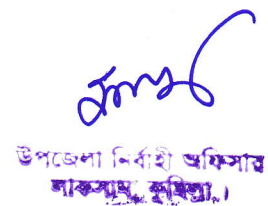 উপজেলা নির্বাহী অফিসার
লাকসাম, কুমিল্লা।